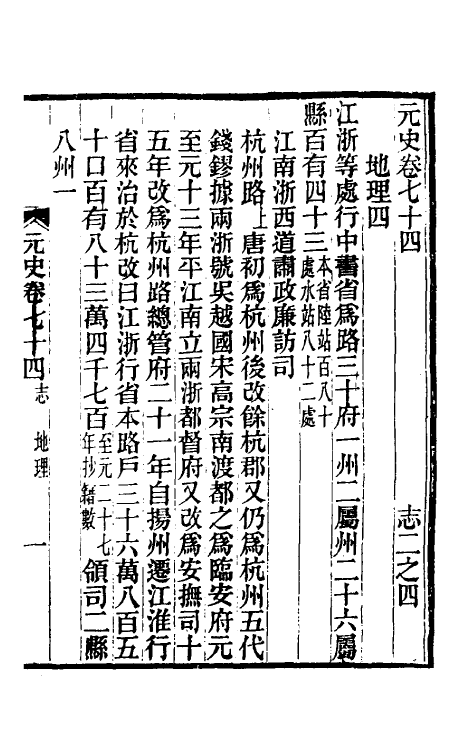 元史卷七十四　志二之四
地理四
江浙等處行中書省爲路三十府一州二屬州二十六屬
縣百有四十三本省陸站百八十處水站八十二處
江南浙西道肅政廉訪司
杭州路上唐初爲杭州後改餘杭郡又仍爲杭州五代
錢鏐據兩浙號吳越國宋高宗南渡都之爲臨安府元
至元十三年平江南立兩浙都督府又改爲安撫司十
五年改爲杭州路總管府二十一年自揚州遷江淮行
省來治於杭改曰江浙行省本路戶三十六萬八百五
十口百有八十三萬四千七百至元二十七年抄籍數領司二縣
八州一
元史卷七十四　志　地理　一